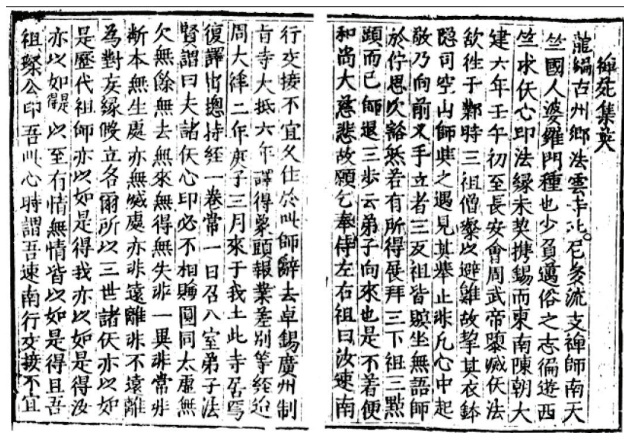 禪苑集英
龍編古州鄉法雲寺比尼多流支禪師南天
竺國人婆羅門種也少負邁俗之志徧遊西
竺求仸心印法緣未契携錫而東南陳朝大
建六年壬午初至長安會周武帝毀滅仸法
欲徃于鄴時三祖僧璨以避難故挈其衣鉢
隠司空山師與之遇見其舉止非凢心中起
敬乃向前叉手立者三反祖皆瞋坐無語師
於佇思次豁然若有所得展拜三下祖三點
頭而已師退三步云弟子向來也是不着便
和尚大慈悲故願乞奉侍左右祖曰汝速南
行交接不宜久住於此師辭去卓錫廣州制
旨寺大抵六年譯得象頭報業差别等經迨
周大祥二年庚子三月來于我土此寺居焉
復譯出總持經一卷常一日召入室弟子法
賢謂曰夫諸仸心印必不相賺圓同太虛無
欠無餘無去無來無得無失非一異非常非
断本無生處亦無滅處亦非遠離非不遠離
為對妄緣假立名爾所以三世諸仸亦以如
是歷代祖師亦以如是得我亦以如是得汝
亦以如是得以至有情無情皆以如是得且吾
祖璨公印吾此心時謂吾速南行交接不宜